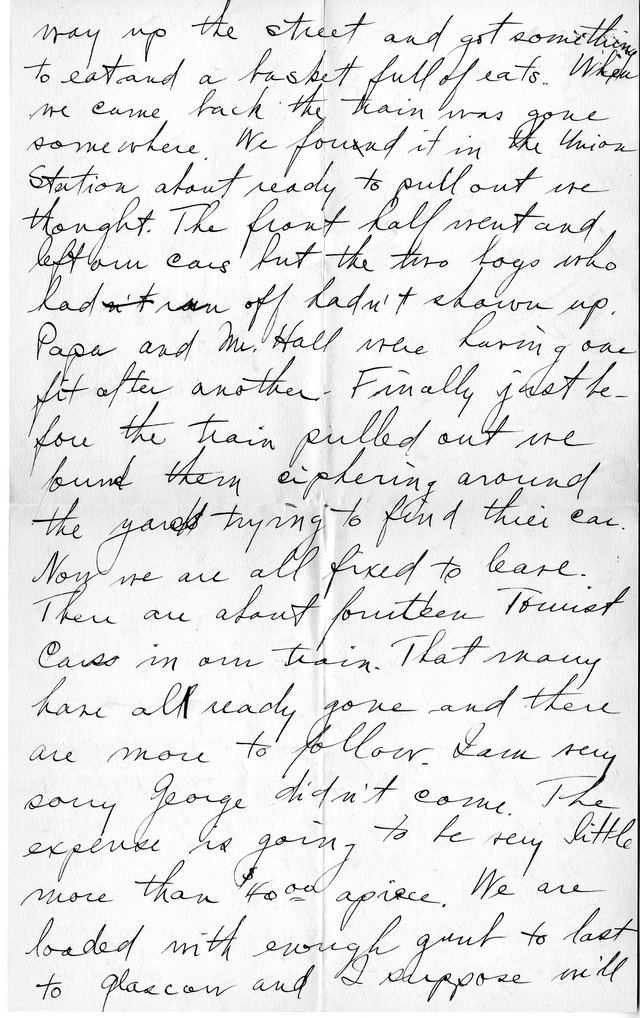 way up the street and got something
to eat and a basket full of eats. When
we came back the train was gone
somewhere. We found it in the Union
Station about ready to pull out we
thought. The front half went and
left our cars but the two boys who
hadn't run off hadn't shown up.
Papa and Mr. Hall were having one
fit after another. Finally just be-
fore the train pulled out we
found them ciphering around
the yards trying to find thier car.
Now we are all fixed to leave.
There are about fourteen Tourist
Cars in our train. That many
have all ready gone and there
are more to follow. I am very
sorry George didn't come. The
expense is going to be very little
more than $40.00 apiece. We are
loaded with enough grub to last
to glascow and I suppose will